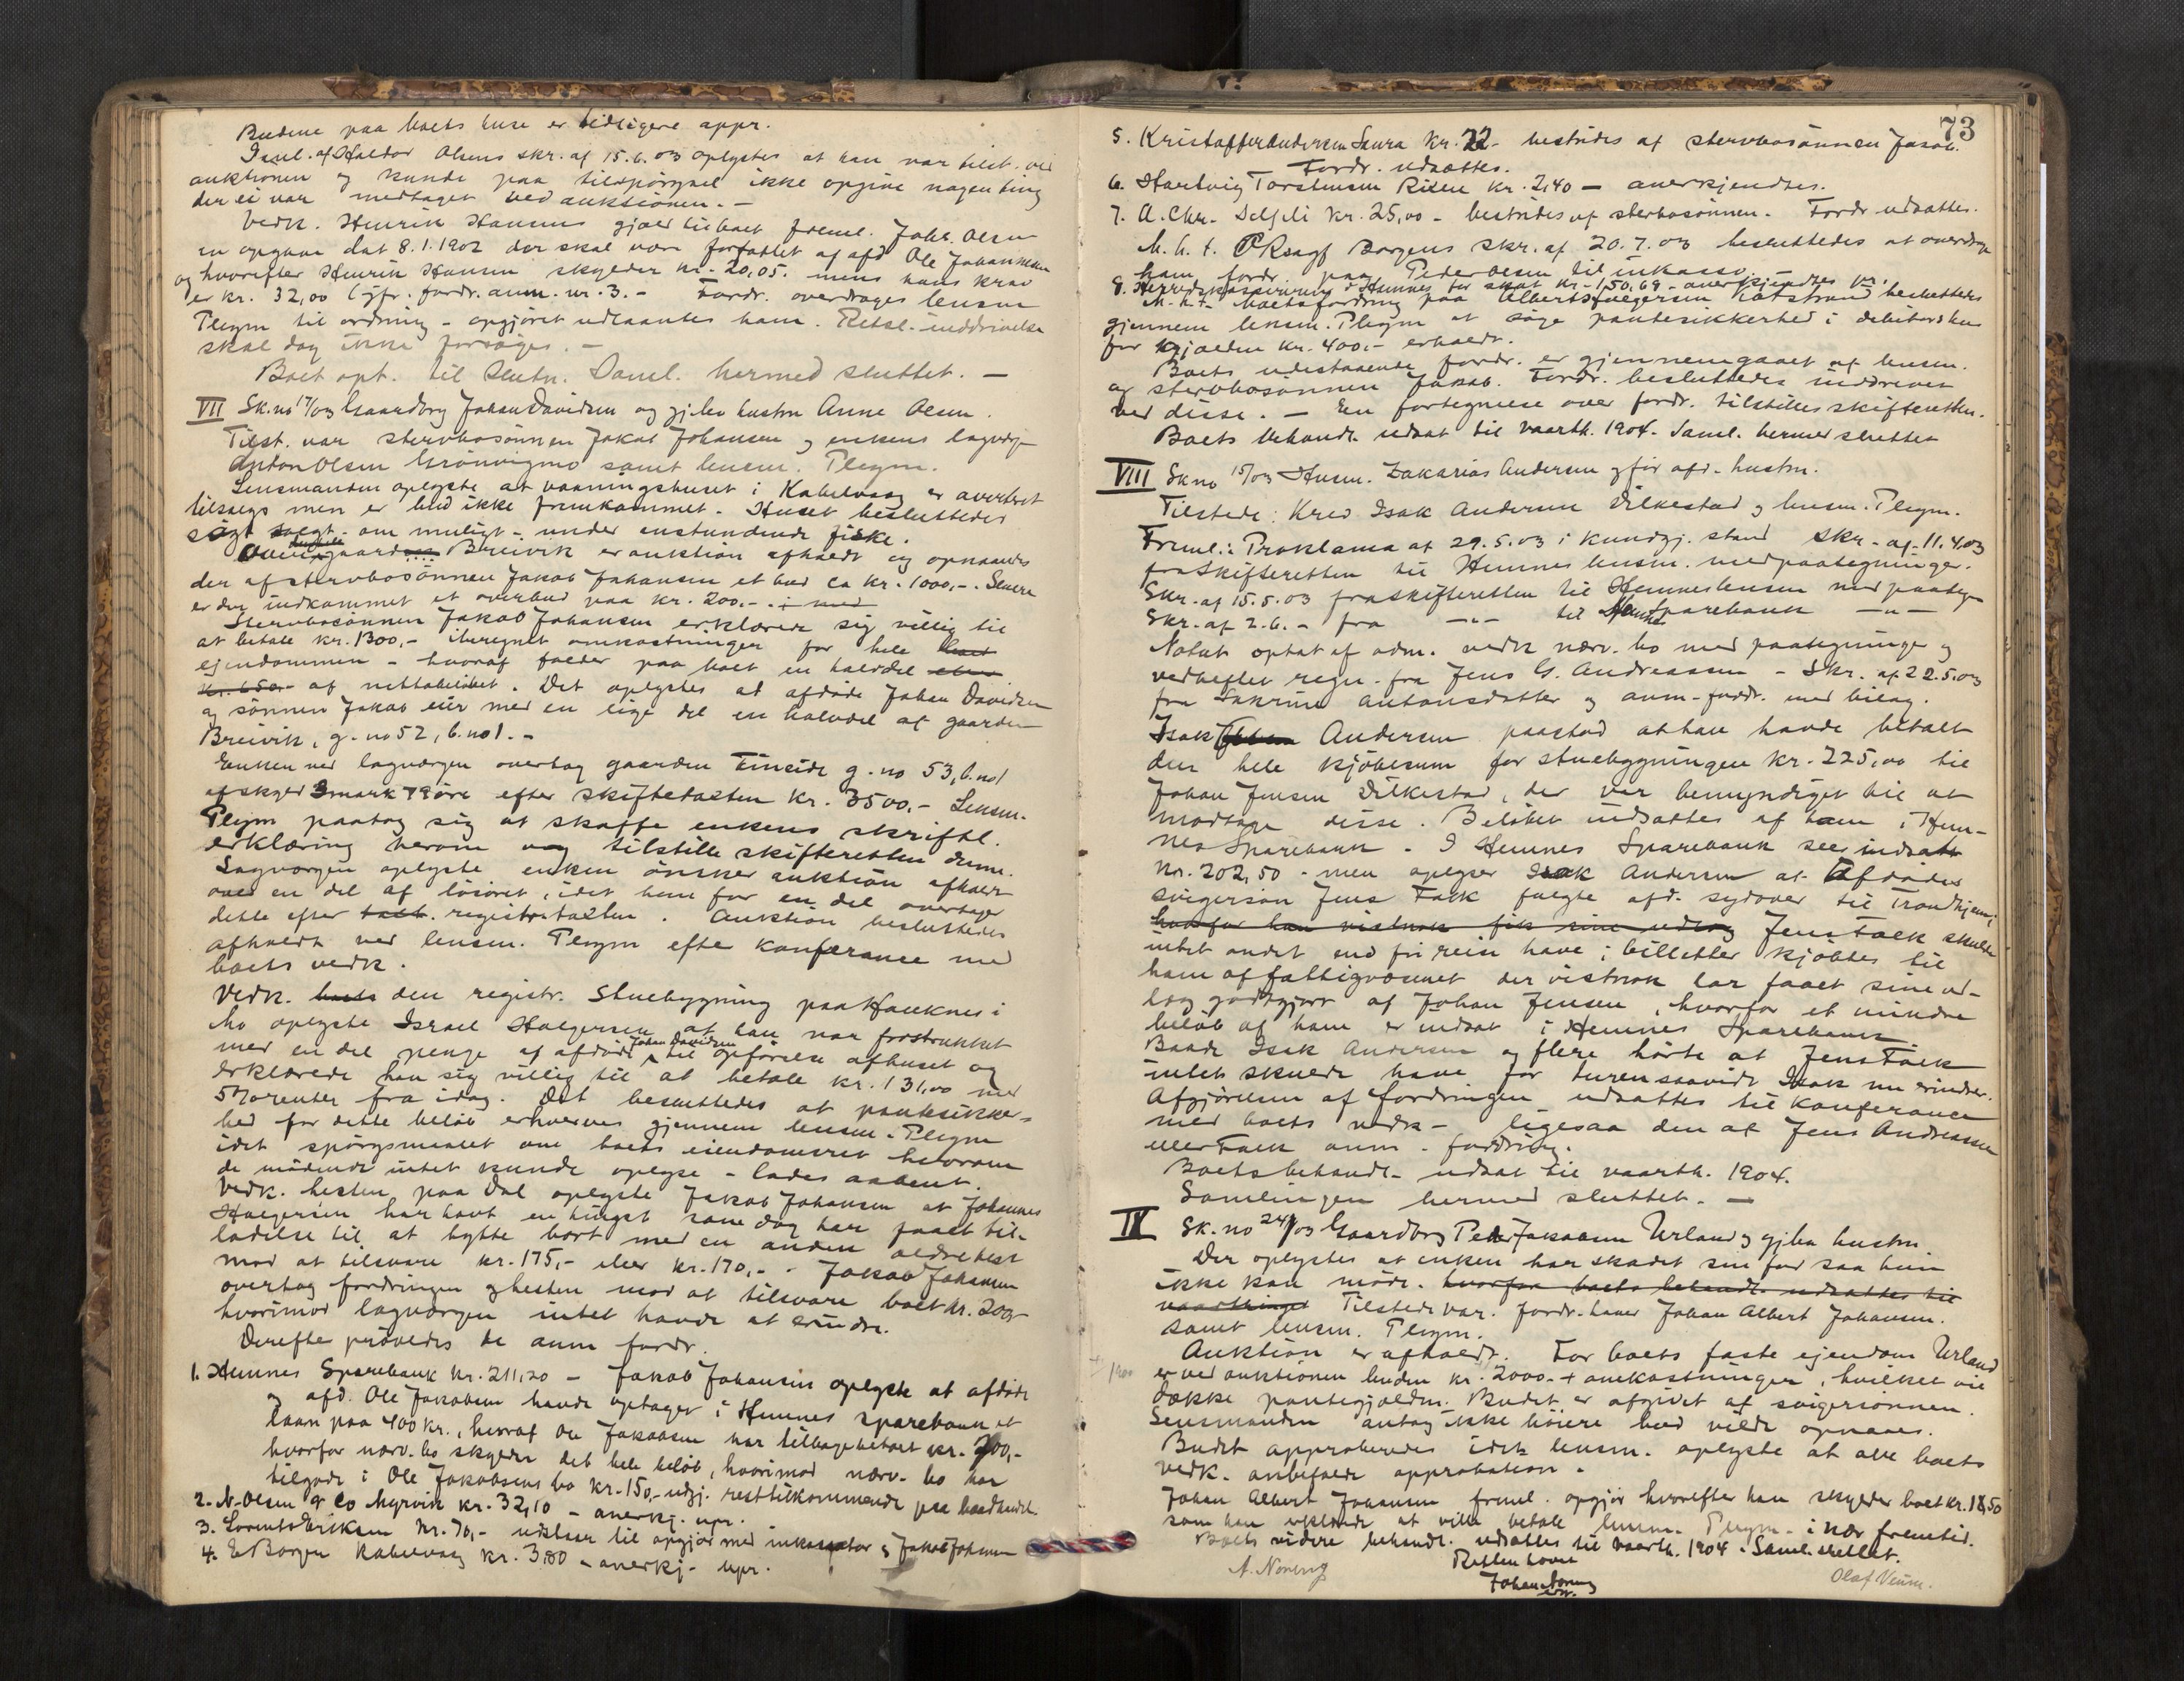 Budene paa boets huse er tidligere appr.
Iflg. Haldor Olsens skr. af 15.6.03 oplystes at han var tilst. ved
auktionen og kunde paa tilspörgsel ikke opgive nogen ting
der ei var medtaget ved auktionen. -
Vedk. Henrik Hansens gjæld til boet freml. Johs. Olsen
en opgave dat 8.1.1902 der skal være forfattet af afd Ole Johannesen
og hvorefter Henrik Hansen skylder kr. 20,05. mens hans krav
er kr. 32,00 (jfr. fordr. anm. nr. 3. - Fordr. overdrages lensm
Pleym til ordning - opgjöret udlaantes ham. Retsl. inddrivelse
skal dog ikke forsöges. -
Boet opt. til Slutn. Saml. hermed sluttet. -
VII Sk. no 17/03 Gaardbrg Johan Davidsen og gjlev hustru Anne Olsen.
Tilst. var stervbosönnen Jakob Johansen og enkens lagverge
Anton Olsen Grönvigmo samt lensm. Pleym.
Lensmanden oplyste at vaaningshuset i Kabelvaag er averteret
tilsalgs men er bud ikke fremkommet. Huset besluttedes
sögt solgt - om muligt - under enstundende fiske.
gaard Breivik er auktion afholdt og opnaaedes
der af stervbosönnen Jakob Johansen et bud ca kr. 1000,-. Senere
er der indkommet et overbud paa kr. 200.-. i med
Stervbosönnen Jakob Johansen erklærede sig villig til
at betale kr. 1300,- iberegnet omkostninger for hele boet
ejendommen - hvoraf falder paa boet en halvdel eller
kr. 650.- af nettobelöbet. Det oplystes at afdöde Johan Davidsen
og sönnen Jakob eier med en lige del en halvdel af gaarden
Breivik, g. no 52, b. no 1. -
Enken ved lagvergen overtog gaarden Fineide g. no 53, b. no 1
af skyld 3 mark 79 öre efter skiftetaxten kr. 3500,- Lensm.
Pleym paatog sig at skaffe enkens skriftl.
erklæring herom og tilstille skifteretten denne.
Lagvergen oplyste enken önsker auktion afholdt
over en del af lösöret, idet hun for en del overtager
dette efter taxt. registr. taxten. Auktion besluttedes
afholdt ved lensm. Pleym efter konferance med
boets vedk.
Vedk. boets den registr. Stuebygning paa Hauknes i
Mo oplyste Israel Holgersen at han var forstrukket
med en del penge af afdöde Johan Davidsen til opförelse af huset og
erklærede han sig villig til at betale kr. 131,00 med
5% renter fra idag. Det besluttedes at pantesikker-
hed for dette belöb erhverves gjennem lensm. Pleym
idet spörgsmaalet om boets eiendomsret hvorom
de mödende intet kunde oplyse - lades aabent.
Vedk. hesten paa Dal oplyste Jakob Johansen at Johannes
Holgersen har havt en hingst som dog har faaet til-
ladelse til at bytte bort med en anden ældre hest
mod at tilsvare kr. 175,- eller kr. 170,-. Jakob Johansen
overtog fordringen og hesten mod at tilsvare boet kr. 200,-
hvorimod lagvergen intet havde at erindre.
Derefter prövedes de anm fordr.
1. Hemnes Sparebank kr. 211,20 - Jakob Johansen oplyste at afdöde
og afd. Ole Jakobsen havde optaget i Hemnes sparebank et
laan paa 400 kr., hvoraf Ole Jakobsen har tilbagebetalt kr. 200,-
hvorfor nærv. bo skylder det hele belöb, hvorimod nærv. bo har
tilgode i Ole Jakobsens bo kr. 150,- udgj. resttilkommende paa
2. N. Olsen & Co Myrvik kr. 32,10 - anerkj. upr.
3. Lorents Eriksen kr. 70,- udstaar til opgjör med inkassator & Jakob Johansen
4. E Borgen Kabelvaag kr. 3,80 - anerkj. upr.
73
5. Kristoffer Andersen Saura kr. 22,- bestrides af stervbosönnen Jakob.
Fordr. udsættes.
6. Hartvig Torstensen Risen kr. 2,40 - anerkjendtes.
7. A. Chr. Delfeli kr. 25,00 - bestrides af sterbosönnen. Fordr udsattes.
M. h. t. O.R.sagf Borgens skr. af 20.7.03 besluttedes at overdrage
ham fordr. paa Peder Olsen til inkasso. -
8. Herredskassereren i Hemnes for skat kr. 150.69 - anerkjendtes pr.
M. h. t. boets fordring paa Albert Holgersen besluttedes
gjennem lensm. Pleym at söge pantesikkerhed i debitors hus
for gjælden kr. 400.- erholdt.
Boets udestaaende fordr. er gjennemgaaet af lensm.
og stervbosönnen Jakob. Fordr. besluttedes inddrevet
ved disse. - En fortegnelse over fordr. tilstilles skifteretten.
Boets behandl. udsat til vaarth. 1904. Saml. hermed sluttet
VIII Sk no 15/03 Husm. Zakarias Andersen og för afd. hustru.
Tilstede: Kred Isak Andersen Vilkestad og lensm. Pleym.
Freml.: Proklama af 29.5.03 i kundgj. stand Skr. af 11.4.03
fra Skifteretten til Hemnes lensm. med paategninger.
Skr. af 15.5.03 fra skifteretten til Hemnes lensm med paategn
Skr. af 2.6. - fra -"- til Hemnes Sparebank -"-
Notat optat af adm. vedk nærv. bo med paategninger og
vedheftet regn. fra Jens G. Andreassen - Skr. af 22.5.03
fra Sakrine Antonsdatter og anm. fordr. med bilag.
Isak Andersen paastod at han havde betalt
den hele kjöbesum for stuebygningen kr. 225,00 til
Johan Jensen Vilkestad, der var bemyndiget til at
modtage disse. Belöbet indsattes af ham i Hem-
nes Sparebank. I Hemnes Sparebank sees indsatt
kr. 202,50 - men oplyser Isak Andersen at afdödes
svigersön Jens Falk fulgte afd. sydover til Trondhjem,
hvorfor han vistnok fik sine udlæg Jens Falk skulde
intet andet end fri reise have; billetter kjöbtes til
ham af fattigvæsenet der vistnok har faaet sine ud-
læg godtgjort af Johan Jensen, hvorfor et mindre
belöb af ham er indsat i Hemnes Sparebank.
Baade Isak Andersen og flere hörte at Jens Falk
intet skulde have for turen saavidt Isak nu erindrer.
Afgjörelsen af fordringen udsattes til konferance
med boets vedk - ligesaa den af Jens Andreassen
eller Falk anm. fordring.
Boets behandl. udsat til vaarth. 1904.
Samlingen hermed sluttet. -
IX Sk. no 24/03 Gaardbrg Peder Jakobsen Urland og gjlev hustru
Der oplystes at enken har skadet sin fod saa hun
ikke kan möde. hvorfor boets behandl. udsattes til
vaartinget Tilstede var fordr. haver Johan Albert Johansen.
samt lensm. Pleym.
Auktion er afholdt. For boets faste ejendom Urland
er ved auktionen buden kr. 2000.- + omkostninger, hvilket vil
dække pantegjælden. Budet er afgivet af svigersönnen.
Lensmanden antog ikke höiere bud vilde opnaaes.
Budet approberedes idet lensm. oplyste at alle boets
vedk. anbefalede approbation.
Johan Albert Johansen freml. opgjör hvorefter han skylder boet kr. 18,50
som han erklærede at ville betale lensm. Pleym i nær fremtid.
Boets videre behandl. udsattes til vaarth. 1904. Saml. sluttet.
Retten hævet
A. Norberg
Olaf Veum.